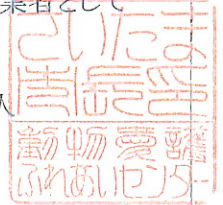 業者として
さいたま
市長印
動物愛護
ふれあいセンター